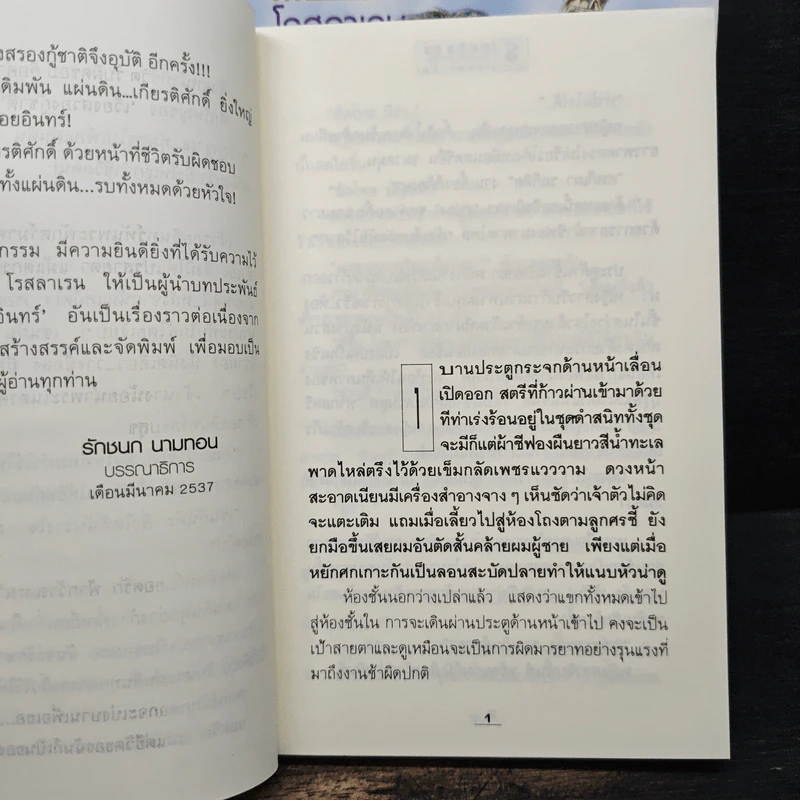 โรสลาเรน
งสรองกู้ชาติจึงอุบัติ อีกครั้ง!!!
ดิมพัน แผ่นดิน...เกียรติศักดิ์ ยิ่งใหญ่
อยอินทร์!
รติศักดิ์ ด้วยหน้าที่ชีวิตรับผิดชอบ
ทั้งแผ่นดิน...รบทั้งหมดด้วยหัวใจ!
กรรม มีความยินดียิ่งที่ได้รับความไว้
โรสลาเรน ให้เป็นผู้นำบทประพันธ์
อินทร์' อันเป็นเรื่องราวต่อเนื่องจาก
สร้างสรรค์และจัดพิมพ์ เพื่อมอบเป็น
ผู้อ่านทุกท่าน
รักชนก นามทอน
บรรณาธิการ
เดือนมีนาคม 2537
1
บานประตูกระจกด้านหน้าเลื่อน
เปิดออก สตรีที่ก้าวผ่านเข้ามาด้วย
ทีท่าเร่งร้อนอยู่ในชุดดำสนิททั้งชุด
จะมีก็แต่ผ้าชีฟองผืนยาวสีน้ำทะเล
พาดไหล่ตรึงไว้ด้วยเข็มกลัดเพชรแวววาม ดวงหน้า
สะอาดเนียนมีเครื่องสำอางจาง ๆ เห็นชัดว่าเจ้าตัวไม่คิด
จะแตะเติม แถมเมื่อเลี้ยวไปสู่ห้องโถงตามลูกศรชี้ ยัง
ยกมือขึ้นเสยผมอันตัดสั้นคล้ายผมผู้ชาย เพียงแต่เมื่อ
หยักศกเกาะกันเป็นลอนสะบัดปลายทำให้แนบหัวน่าดู
ห้องชั้นนอกว่างเปล่าแล้ว แสดงว่าแขกทั้งหมดเข้าไป
สู่ห้องชั้นใน การจะเดินผ่านประตูด้านหน้าเข้าไป คงจะเป็น
เป้าสายตาและดูเหมือนจะเป็นการผิดมารยาทอย่างรุนแรงที่
มาถึงงานช้าผิดปกติ
1